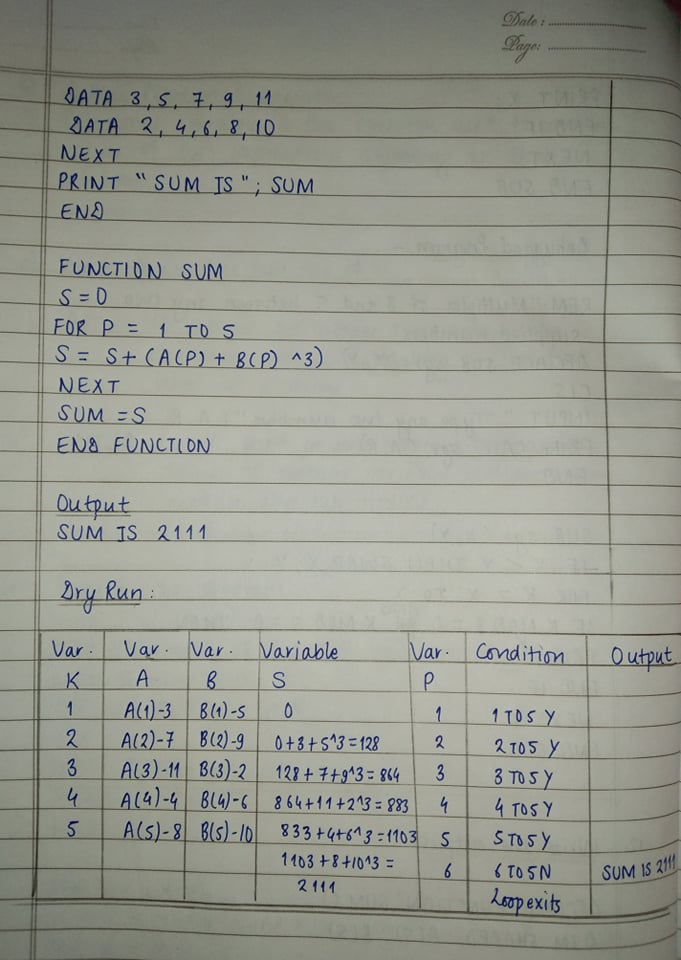 Date :
Page:
DATA 3, 5, 7, 9, 11
DATA 2, 4, 6, 8, 10
NEXT
PRINT "SUM IS" ; SUM
END
FUNCTION SUM
S = 0
FOR P = 1 TO 5
S = S + (A(P) + B(P) ^3)
NEXT
SUM = S
END FUNCTION
Output
SUM IS 2111
Dry Run :
Var. Var. Var. Variable Var. Condition Output
K A B S P
1 A(1)-3 B(1)-5 0 1 1 TO 5 Y
2 A(2)-7 B(2)-9 0+3+5^3=128 2 2 TO 5 Y
3 A(3)-11 B(3)-2 128+7+9^3=864 3 3 TO 5 Y
4 A(4)-4 B(4)-6 864+11+2^3=883 4 4 TO 5 Y
5 A(5)-8 B(5)-10 833+4+6^3=1103 5 5 TO 5 Y
1103+8+10^3= 6 6 TO 5 N SUM IS 2111
2111 Loop exits